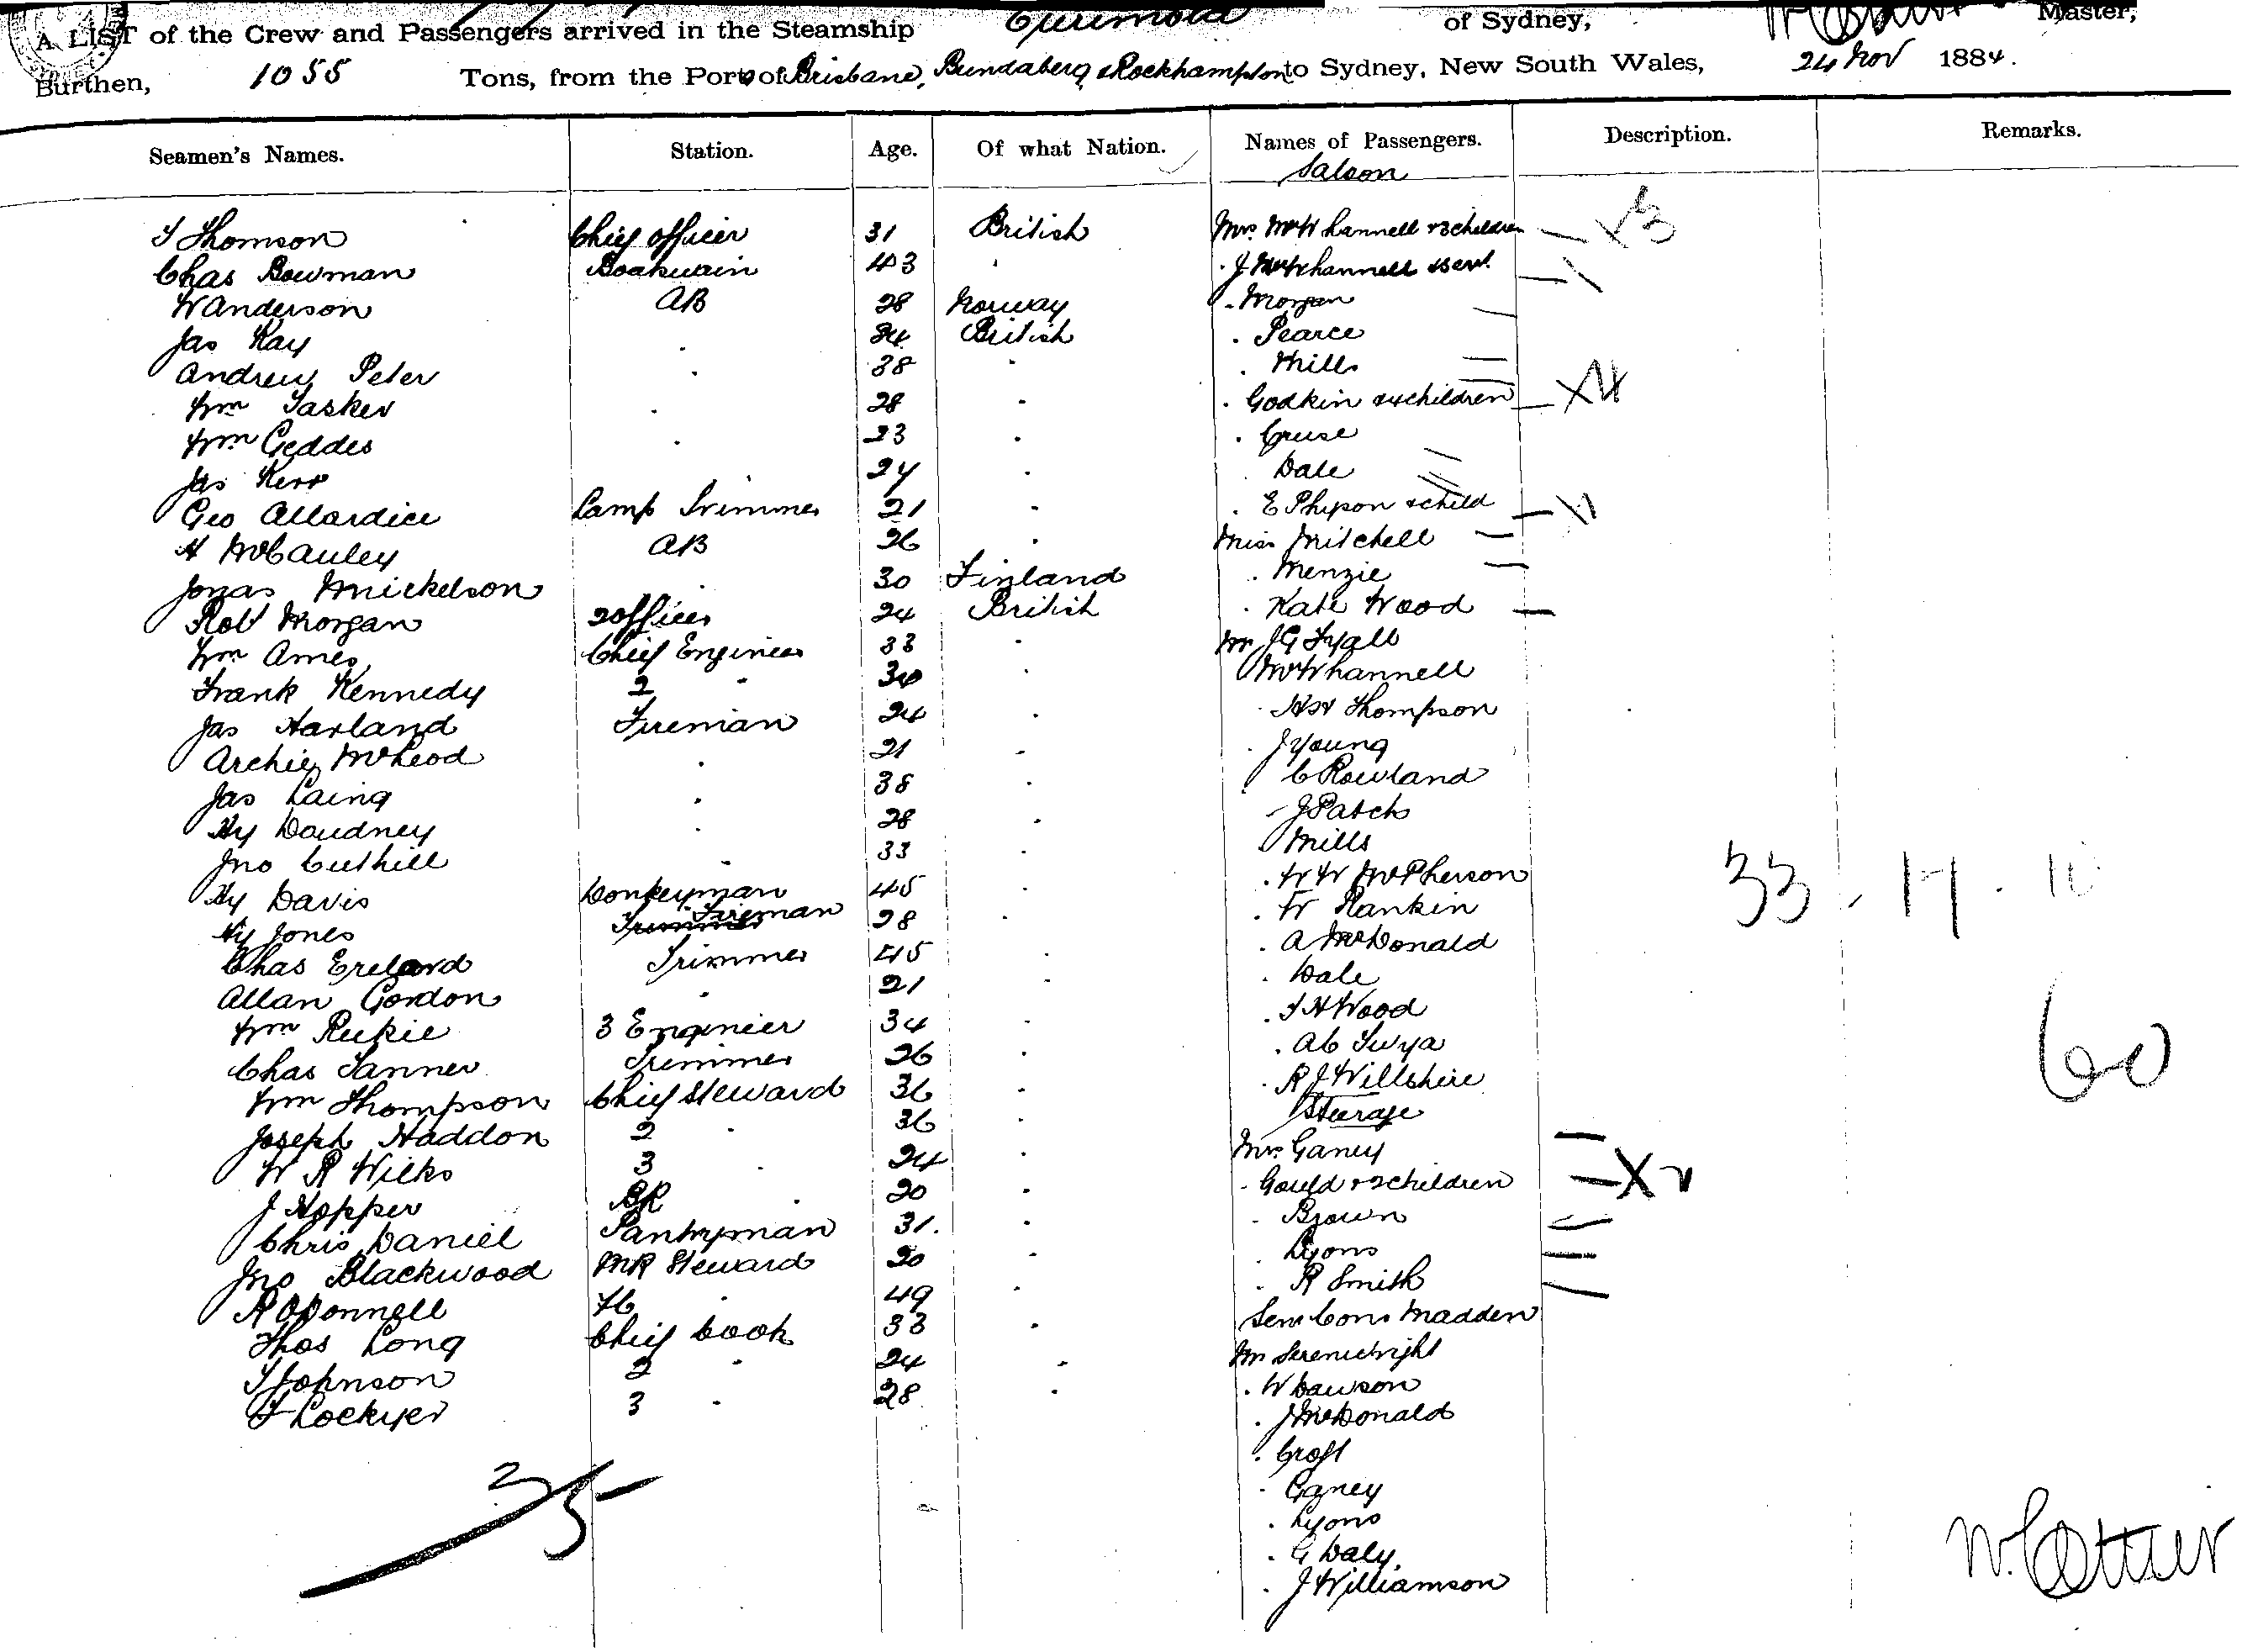 A LIST of the Crew and Passengers arrived in the Steamship of Sydney, Master,
Burthen, 1055 Tons, from the Ports of Brisbane, Bundaberg & Rockhampton to Sydney, New South Wales, 24 Nov 1884.
Seamen's Names. Station. Age. Of what Nation. Names of Passengers. Description. Remarks.
Saloon
T Thomson Chief officer 31 British Mrs. McWhannell & 3 children X3
Chas Bowman Boatswain 43 " J McWhannell & servt.
W Anderson AB 28 Norway " Morgan
Jas Kay " 34 British " Pearce
Andrew Peter " 38 " " Mills
Wm Tasker " 28 " " Godkin & 4 children X4
Wm Geddes " 23 " " Cruse
Jas Kerr 24 " " Dale
Geo Allardice Lamp Trimmer 21 " " E Phipson & child
H McCauley AB 26 " Miss Mitchell
Jonas Mickelson " 30 Finland " Menzie
Robt Morgan 2 officer 24 British " Kate Wood
Wm Ames Chief Engineer 33 " Mr J G Fyall
Frank Kennedy 2 " 34 " McWhannell
Jas Harland Fireman 24 " " Thompson
Archie McLeod " 21 " " J Young
Jas Laing " 38 " C Rowland
Hy Daudney " 28 " J Patch
Jno Cuthill " 33 " Mills
Hy Davis Donkeyman 45 " " W W McPherson
Hy Jones Trimmer Fireman 28 " " W Rankin
33 . 17 . 10
Chas Trimmer 45 " " A McDonald
Allan Gordon " 21 " " Dale
Wm Reekie 3 Engineer 34 " " T H Wood
60
Chas Tanner Trimmer 26 " "
Wm Thompson Chief Steward 36 " " R J Willshire
Steerage
Joseph Haddon 2 " 36 " Mrs. Ganey
W R Wilks 3 " 24 " " Gould & 2 children X2
J Hopper BR " 20 " " Brown
Chris Daniel Pantryman 31. " " Lyons
Jno Blackwood MR Steward 20 " " R Smith
R ODonnell FC " 49 " Sen Cons Madden
Thos Long Chief Cook 33 " Mr
T Johnson 2 " 24 " " W Dawson
F Lockyer 3 " 28 " " J McDonald
" Croft
35
" Ganey
" Lyons
" G Daly.
" J Williamson